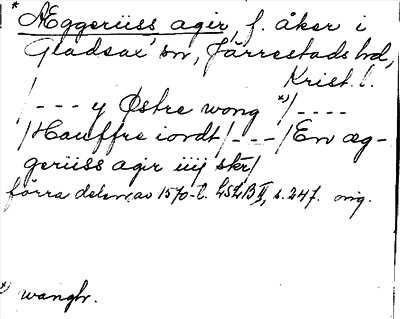 * Æggeriiss agir, f. åker i
Gladsax' sn, Järrestads hd,
Krist. l.
/--- y Østre wong *)/----
/Hauffre iordt/---/En æg-
geriiss agir iiij skr/
förra delen av 1570-t. LSLB II, s. 247. orig.
*) wanghr.